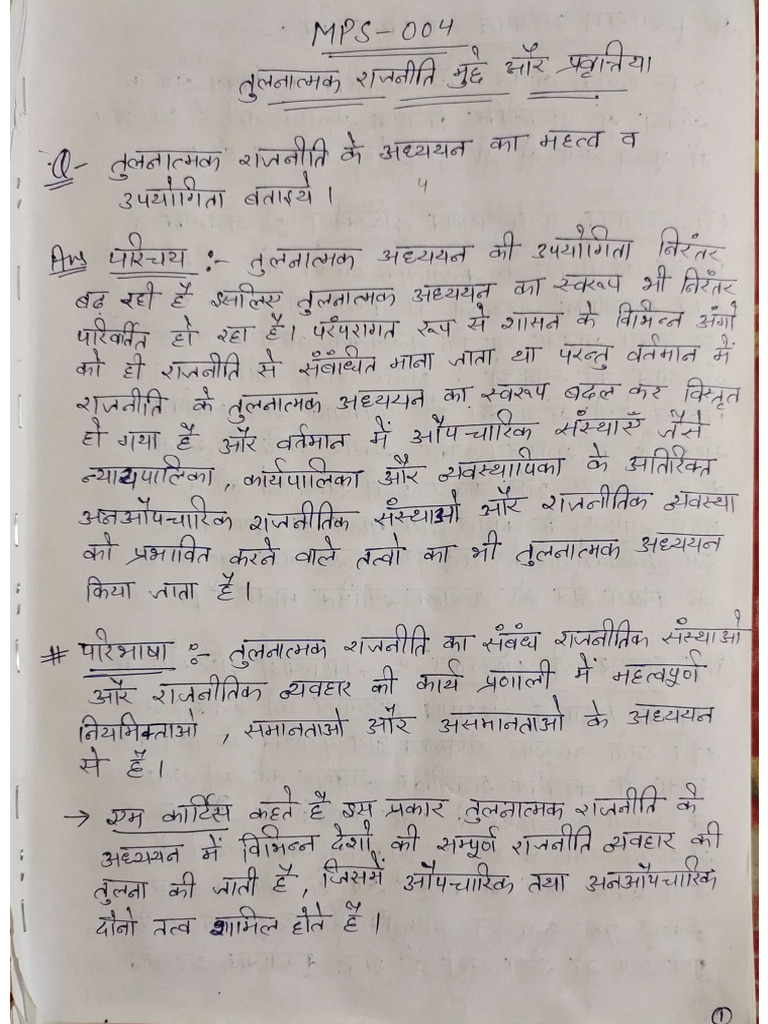 MPS-004
तुलनात्मक राजनीति मुद्दे और प्रवृत्तिया
Q- तुलनात्मक राजनीति के अध्ययन का महत्व व
उपयोगिता बताइये। 4
Ans परिचय :- तुलनात्मक अध्ययन की उपयोगिता निरंतर
बढ़ रही है इसलिए तुलनात्मक अध्ययन का स्वरूप भी निरंतर
परिवर्तित हो रहा है। परंपरागत रूप से शासन के विभिन्न अंगो
को ही राजनीति से संबंधित माना जाता था परन्तु वर्तमान में
राजनीति के तुलनात्मक अध्ययन का स्वरूप बदल कर विस्तृत
हो गया है और वर्तमान में औपचारिक संस्थाएँ जैसे
न्यायपालिका, कार्यपालिका और व्यवस्थापिका के अतिरिक्त
अनऔपचारिक राजनीतिक संस्थाओ और राजनीतिक व्यवस्था
को प्रभावित करने वाले तत्वो का भी तुलनात्मक अध्ययन
किया जाता है।
# परिभाषा :- तुलनात्मक राजनीति का संबंध राजनीतिक संस्थाओ
और राजनीतिक व्यवहार की कार्य प्रणाली में महत्वपूर्ण
नियमिक्ताओं, समानताओ और असमानताओ के अध्ययन
से है।
→ एम कार्टिस कहते है इस प्रकार तुलनात्मक राजनीति के
अध्ययन में विभिन्न देशो की सम्पूर्ण राजनीति व्यवहार की
तुलना की जाती है, जिसमें औपचारिक तथा अनऔपचारिक
दोनो तत्व शामिल होते है।
1